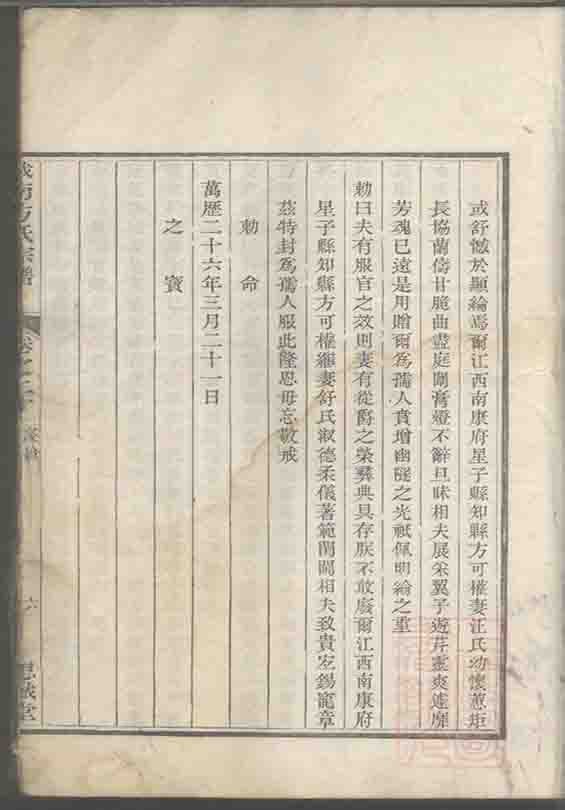 或舒憾於顯綸焉爾江西南康府星子縣知縣方可權妻汪氏幼懷蕙矩
長協蘭儔甘脆曲盡庭闈膏燈不辭旦昧相夫展采翼子遊芹靈爽遽靡
芳魂已遠是用贈爾為孺人賁增幽隧之光祇佩明綸之重
勅曰夫有服官之效則妻有從爵之榮彝典具存朕不敢廢爾江西南康府
星子縣知縣方可權繼妻舒氏淑德柔儀著範閨閫相夫致貴宏錫寵章
茲特封為孺人服此隆恩毋忘敬戒
勅命
萬歷二十六年三月二十一日
之寶
方氏宗譜 卷之 六 思誠堂